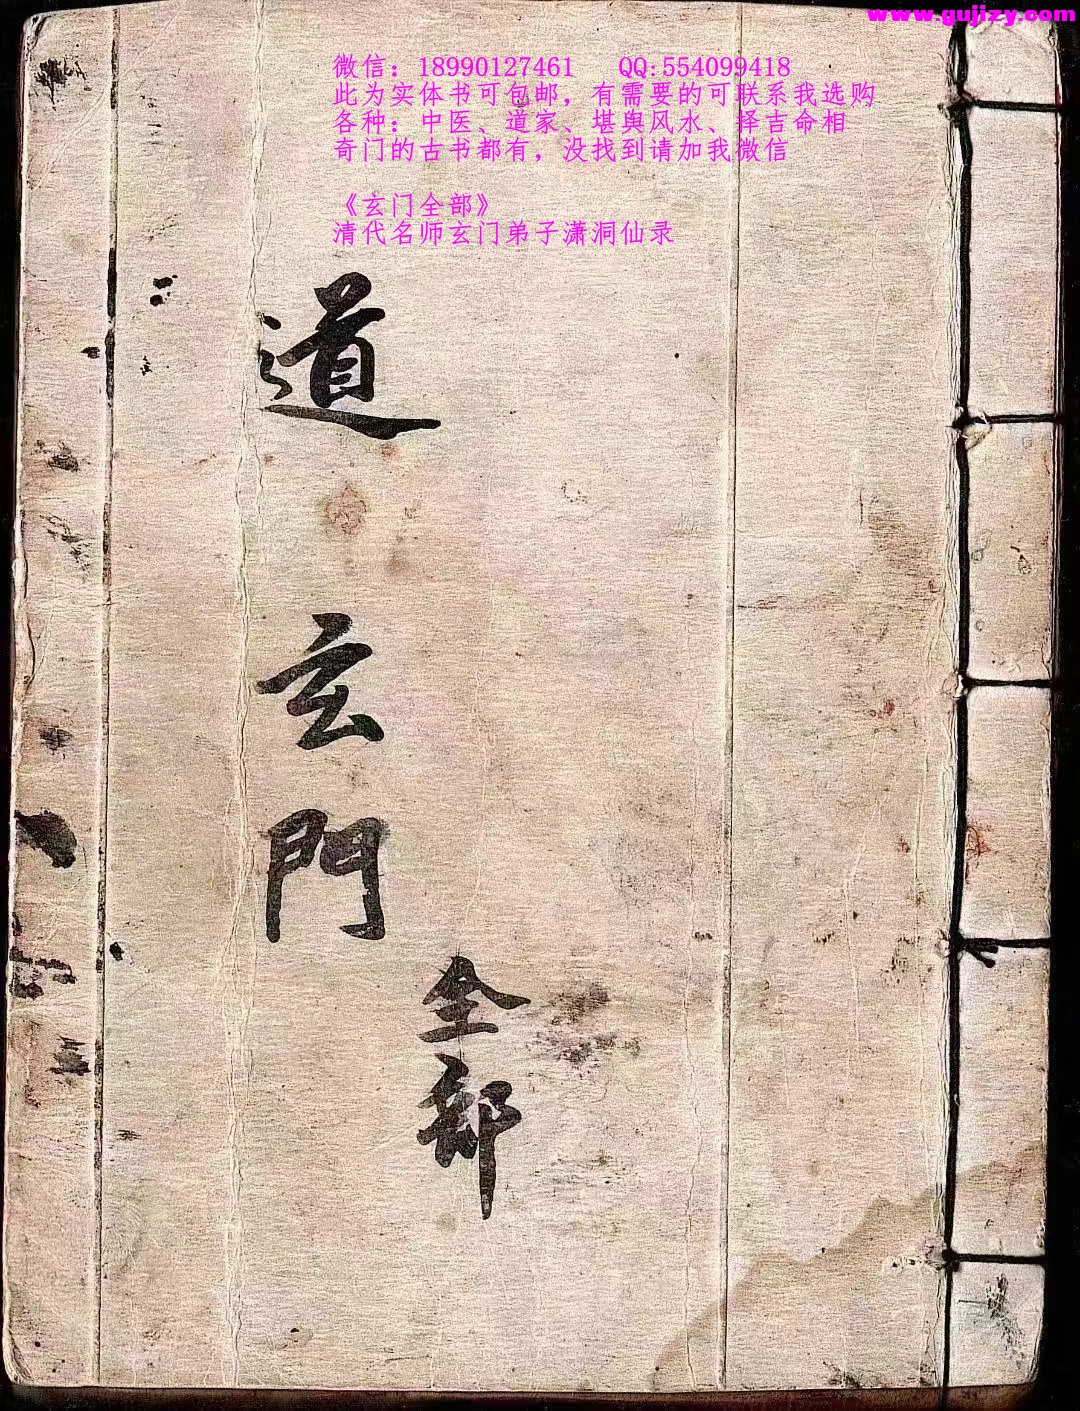 www.gujizy.com
微信：18990127461 QQ:554099418
此为实体书可包邮，有需要的可联系我选购
各种：中医、道家、堪舆风水、择吉命相
奇门的古书都有，没找到请加我微信
《玄门全部》
清代名师玄门弟子潇洞仙录
道玄門
全部